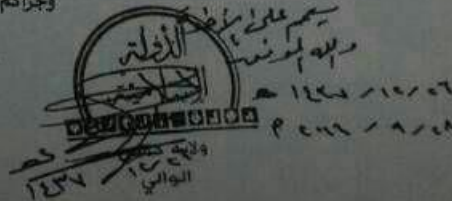 وجرائم
يعمم على
والله الموفق
الدولة
الإسلامية
٢٦ / ١٢ / ١٤٣٧ هـ
٢٨ / ٩ / ٢٠١٦ م
ولاية
١٢/٢٦
الوالي
١٤٣٧